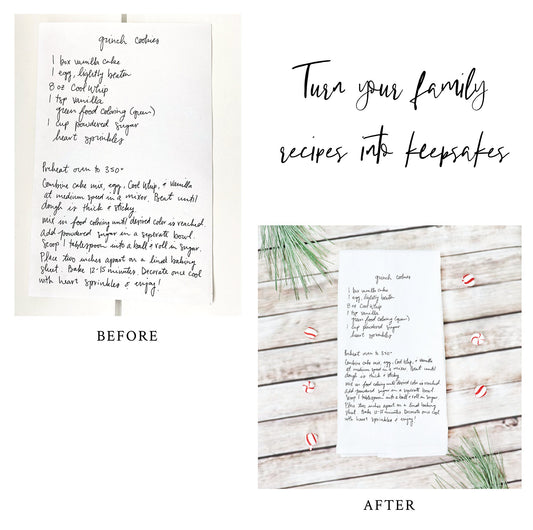 grinch cookies
1 box vanilla cake
1 egg, lightly beaten
8 oz Cool Whip
1 tsp vanilla
green food coloring (green)
1 cup powdered sugar
heart sprinkles
Preheat oven to 350°
Combine cake mix, egg, Cool Whip, + vanilla
at medium speed in a mixer. Beat until
dough is thick + sticky.
Mix in food coloring until desired color is reached.
Add powdered sugar in a seperate bowl.
Scoop 1 tablespoon into a ball + roll in sugar.
Place two inches apart on a lined baking
sheet. Bake 12-15 minutes. Decorate once cool
with heart sprinkles + enjoy!
BEFORE
Turn your family
recipes into keepsakes
grinch cookies
1 box vanilla cake
1 egg, lightly beaten
8 oz Cool Whip
1 tsp vanilla
green food coloring (green)
1 cup powdered sugar
heart sprinkles
Preheat oven to 350°
Combine cake mix, egg, Cool Whip, + vanilla
at medium speed in a mixer. Beat until
dough is thick + sticky.
Mix in food coloring until desired color is reached.
Add powdered sugar in a seperate bowl.
Scoop 1 tablespoon into a ball + roll in sugar.
Place two inches apart on a lined baking
sheet. Bake 12-15 minutes. Decorate once cool
with heart sprinkles + enjoy!
AFTER